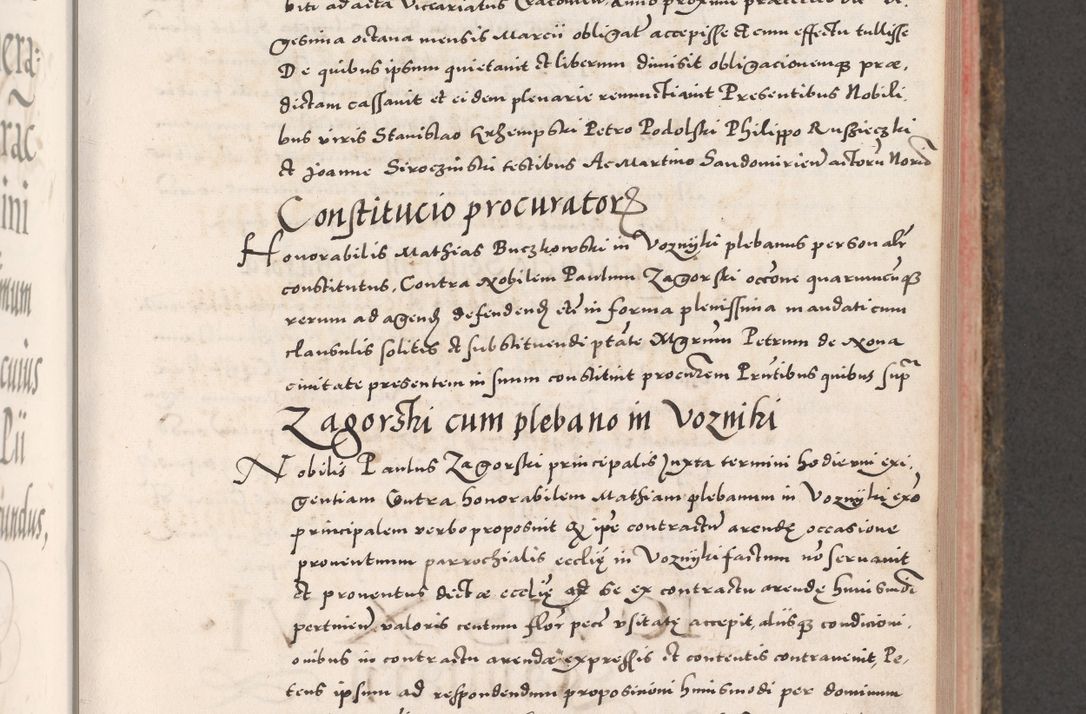 biti ad acta Vicariatus Cracovien anno proximo
gesima octava mensis Marcii obligat accepisse et cum effectu tullisse
De quibus ipsum quietavit et liberum dimisit obligacionemq prae,
dictam cassavit et eidem plenarie renunctiavit Presentibus Nobili,
bus viris Stanislao Krzempski Petro Podolski Philippo Ruszieczki
et Joanne Siroczinski testibus Ac Martino Sandomirien actorũ Norio
Constitucio procurator
Honorabilis Mathias Buczkowski in Voznijki plebanus personalr
constitutus, Contra Nobilem Paulum Zagorski occone quarumcuq
rerum ad agend defendend etc in forma plenissima mandati cum
clausulis solitis et substituendi ptate Mgrum Petrum de Nova
civitate presentem in suum constituit procurem Pntibus quibus supr
Zagorski cum plebano in Vozniki
Nobilis Paulus Zagorski principalis Juxta termini hodierni exi,
gentiam Contra honorabilem Mathiam plebanum in Voznijki exo
principalem verbo proposuit q ipe contractu arendę occasione
proventuum parrochialis ecclię in Voznijki factum no servavit
et proventus dictae ecclię ad se ex contractu arendę huiusmodi
pertinen valoris centum flor pec usitatę accepit, aliisq condicioni,
onibus in contractu arendae expressis et contentis contravenit, Pe,
tens ipsum ad respondendum proposicioni huiusmodi per dominum
era:
rac
ini
mum
cuius
Lii
undus,